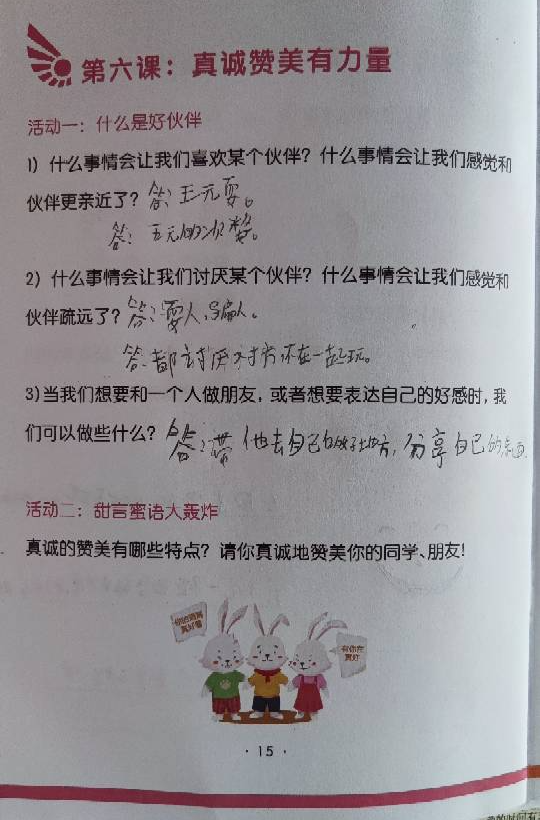 第六课：真诚赞美有力量
活动一：什么是好伙伴
1）什么事情会让我们喜欢某个伙伴？什么事情会让我们感觉和
伙伴更亲近了？答：
答：
2）什么事情会让我们讨厌某个伙伴？什么事情会让我们感觉和
伙伴疏远了？答：耍人，骗人。
答：都讨厌对方不在一起玩。
3)当我们想要和一个人做朋友，或者想要表达自己的好感时，我
们可以做些什么？答：带他去自己的好地方，分享自己的东西
活动二：甜言蜜语大轰炸
真诚的赞美有哪些特点？请你真诚地赞美你的同学、朋友！
有你在
真好
· 15 ·